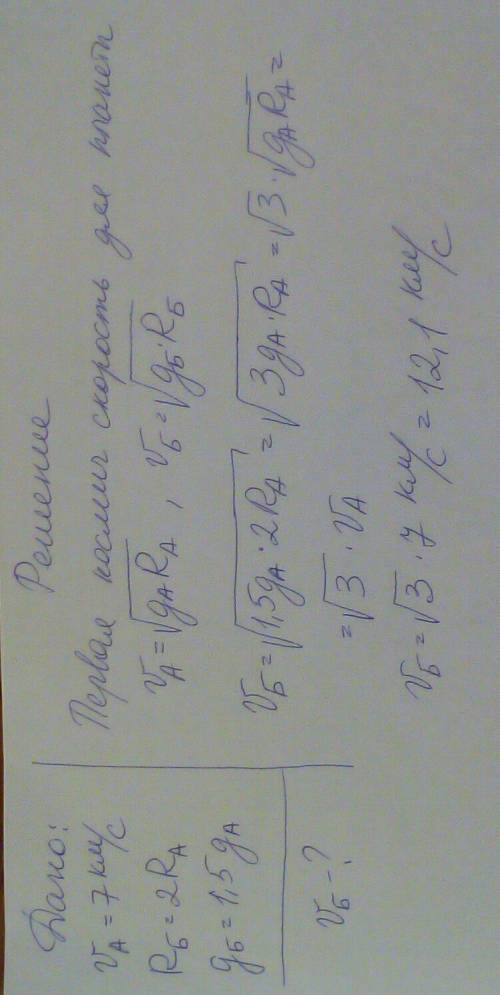 Дано:
v_A = 7 км/с
R_Б = 2R_A
g_Б = 1,5 g_A
v_Б - ?
Решение
Первая космич скорость для планеты
v_A = √(g_A R_A), v_Б = √(g_Б · R_Б)
v_Б = √(1,5g_A · 2R_A) = √(3g_A · R_A) = √3 · √(g_A R_A) =
= √3 · v_A
v_Б = √3 · 7 км/с = 12,1 км/с